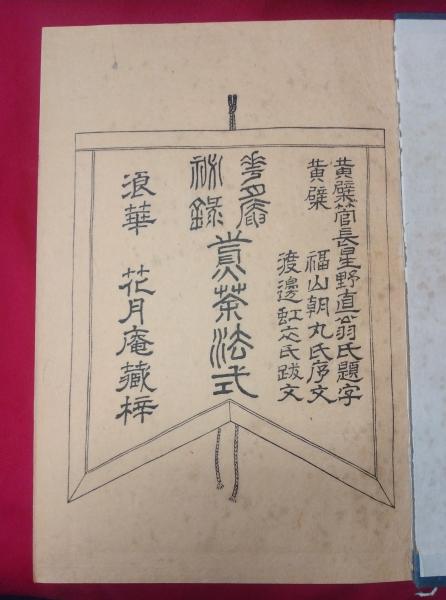 黄檗管長星野直翁氏題字
黄檗　福山朝丸氏序文
渡邊虹衣氏跋文
華月庵
祕錄
煎茶法式
浪華　花月庵藏梓